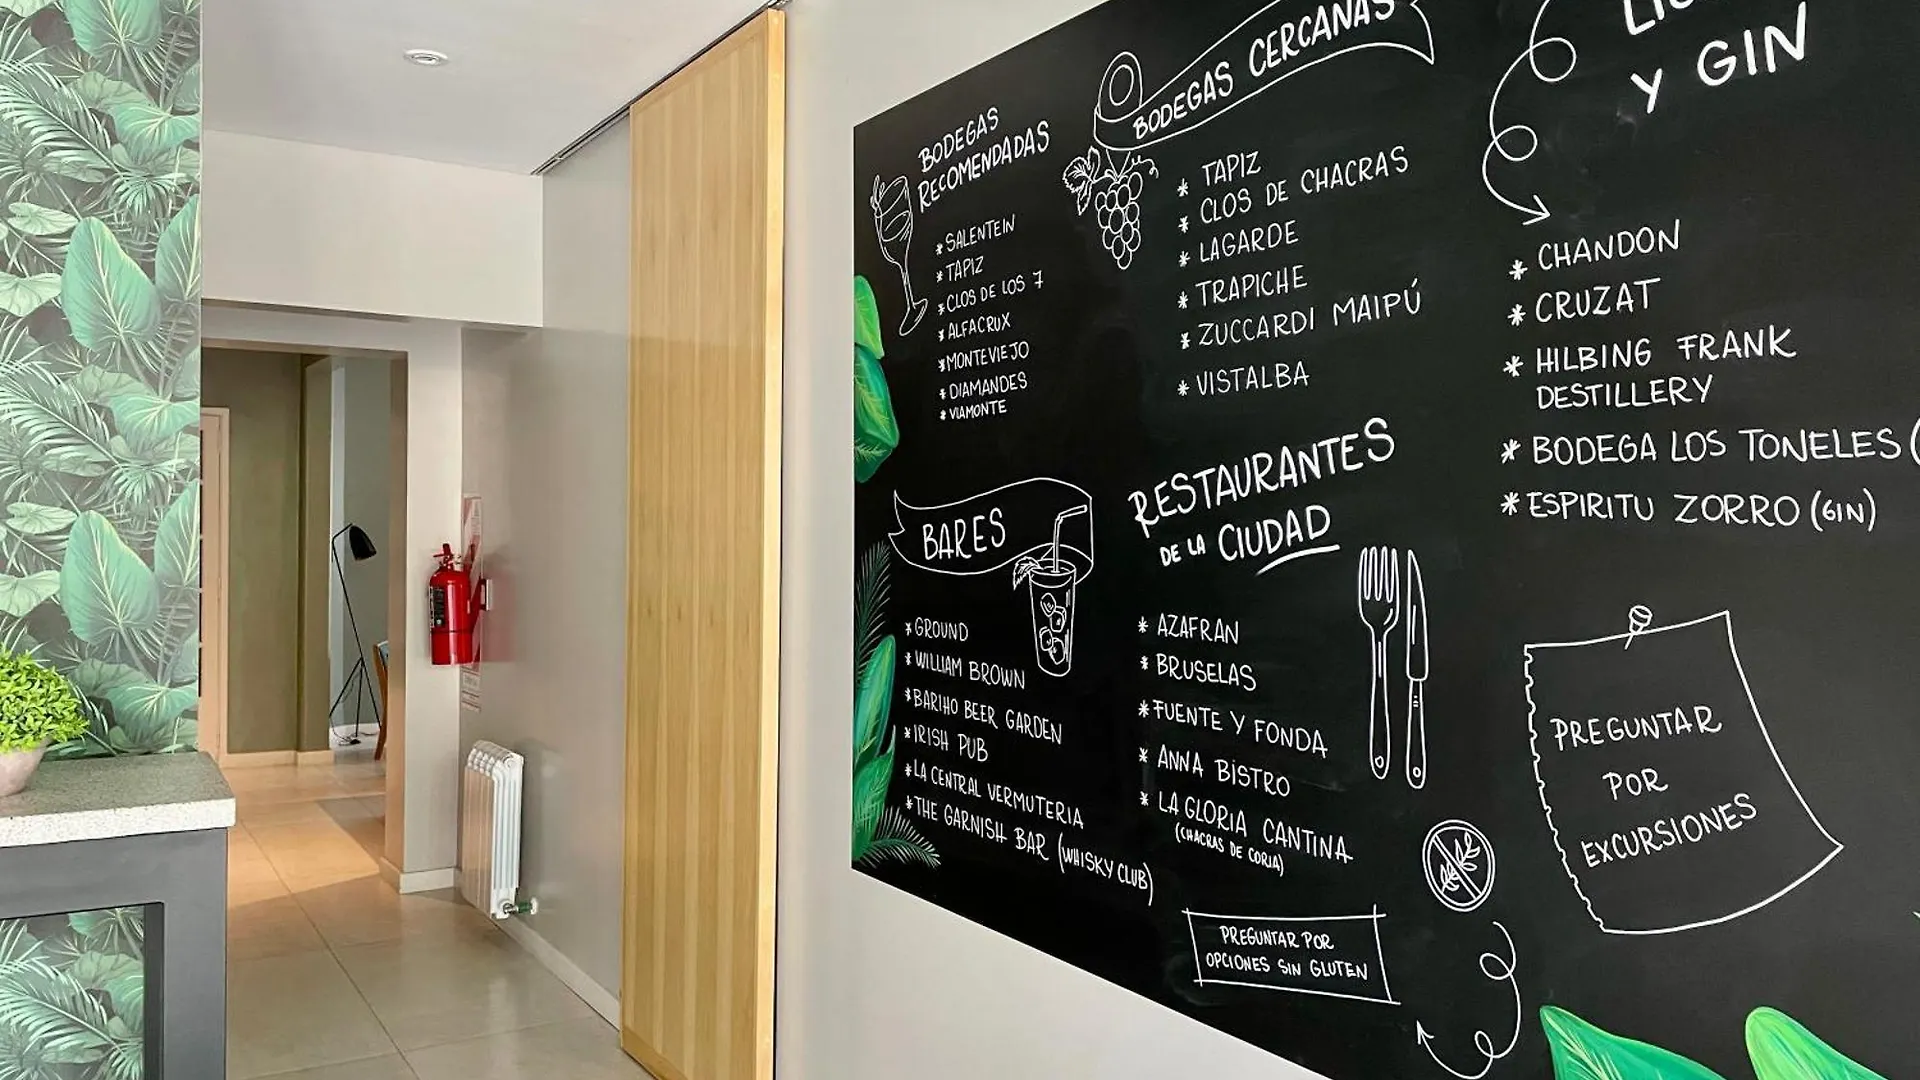 BODEGAS
RECOMENDADAS
* SALENTEIN
* TAPIZ
* CLOS DE LOS 7
* ALFACRUX
* MONTEVIEJO
* DIAMANDES
* VIAMONTE
BODEGAS CERCANAS
* TAPIZ
* CLOS DE CHACRAS
* LAGARDE
* TRAPICHE
* ZUCCARDI MAIPÚ
* VISTALBA
Y GIN
* CHANDON
* CRUZAT
* HILBING FRANK
DESTILLERY
* BODEGA LOS TONELES (
* ESPIRITU ZORRO (GIN)
BARES
* GROUND
* WILLIAM BROWN
* BARIHO BEER GARDEN
* IRISH PUB
* LA CENTRAL VERMUTERIA
* THE GARNISH BAR (WHISKY CLUB)
RESTAURANTES
DE LA CIUDAD
* AZAFRAN
* BRUSELAS
* FUENTE Y FONDA
* ANNA BISTRO
* LA GLORIA CANTINA
(CHACRAS DE CORIA)
PREGUNTAR POR
OPCIONES SIN GLUTEN
PREGUNTAR
POR
EXCURSIONES